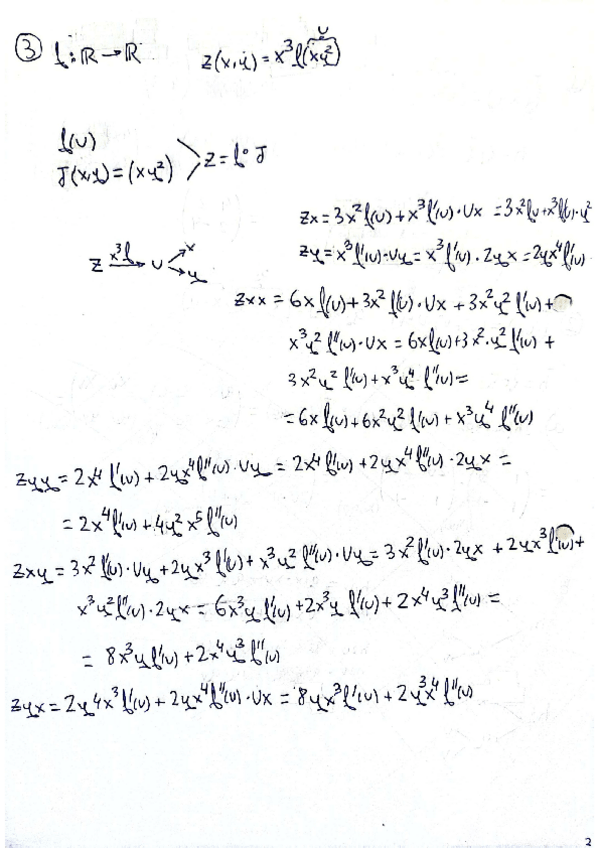 ③ f:ℝ→ℝ z(x,y) = x³f(xy²)
u
f(u)
J(x,y) = (xy²) > z = f∘J
zx = 3x²f(u) + x³f'(u)·Ux = 3x²fu + x³f'(u)·y²
zy = x³f'(u)·Uy = x³f'(u)·2yx = 2yx⁴f'(u)
z x³f→ u x
y
zxx = 6xf(u) + 3x²f'(u)·Ux + 3x²y²f'(u) +
x³y²f''(u)·Ux = 6xf(u) + 3x²·y²f'(u) +
3x²y²f'(u) + x³y⁴f''(u) =
= 6xf(u) + 6x²y²f'(u) + x³y⁴f''(u)
zyy = 2x⁴f'(u) + 2yx⁴f''(u)·Uy = 2x⁴f'(u) + 2yx⁴f''(u)·2yx =
= 2x⁴f'(u) + 4y²x⁵f''(u)
zxy = 3x²f'(u)·Uy + 2yx³f'(u) + x³y²f''(u)·Uy = 3x²f'(u)·2yx + 2yx³f'(u) +
x³y²f''(u)·2yx = 6x³yf'(u) + 2x³yf'(u) + 2x⁴y³f''(u) =
= 8x³yf'(u) + 2x⁴y³f''(u)
zyx = 2y4x³f'(u) + 2yx⁴f''(u)·Ux = 8yx³f'(u) + 2y³x⁴f''(u)
2